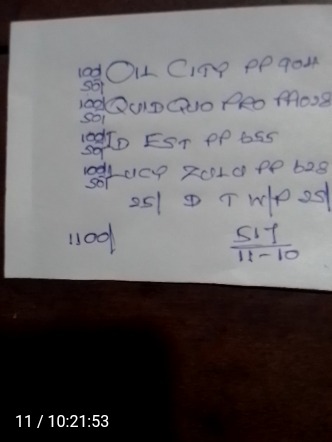 100/50/ OIL CITY PP 904
100/50/ QUID QUO PRO PP1028
100/50/ ID EST PP 655
100/50/ LUCY ZULU PP 628
25/ D T W/P 25/
1100/
11-10
11 / 10:21:53